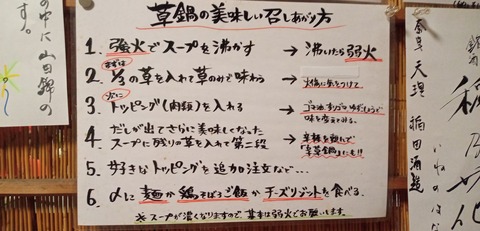 の中に山田錦の
す。
草鍋の美味しい召しあがり方
1. 強火でスープを沸かす → 沸いたら弱火
まずは
2. 1/3の草を入れて草のみで味わう → 火傷に気をつけて
次に
3. トッピング(肉類)を入れる → ゴマ油・すりゴマ・ゆずこしょうで
味を変えてみる。
4 だしが出てさらに美味しくなった → 辛種を頼んで
スープに残りの草を入れて第二段 「辛草鍋」にも!!
5 お好きなトッピングを追加注文など…
6. 〆に麺か鶏そぼろご飯かチーズリゾットを食べる。
※スープが濃くなりますので、基本は弱火でお願いします。
奈良 天理 稲田酒造